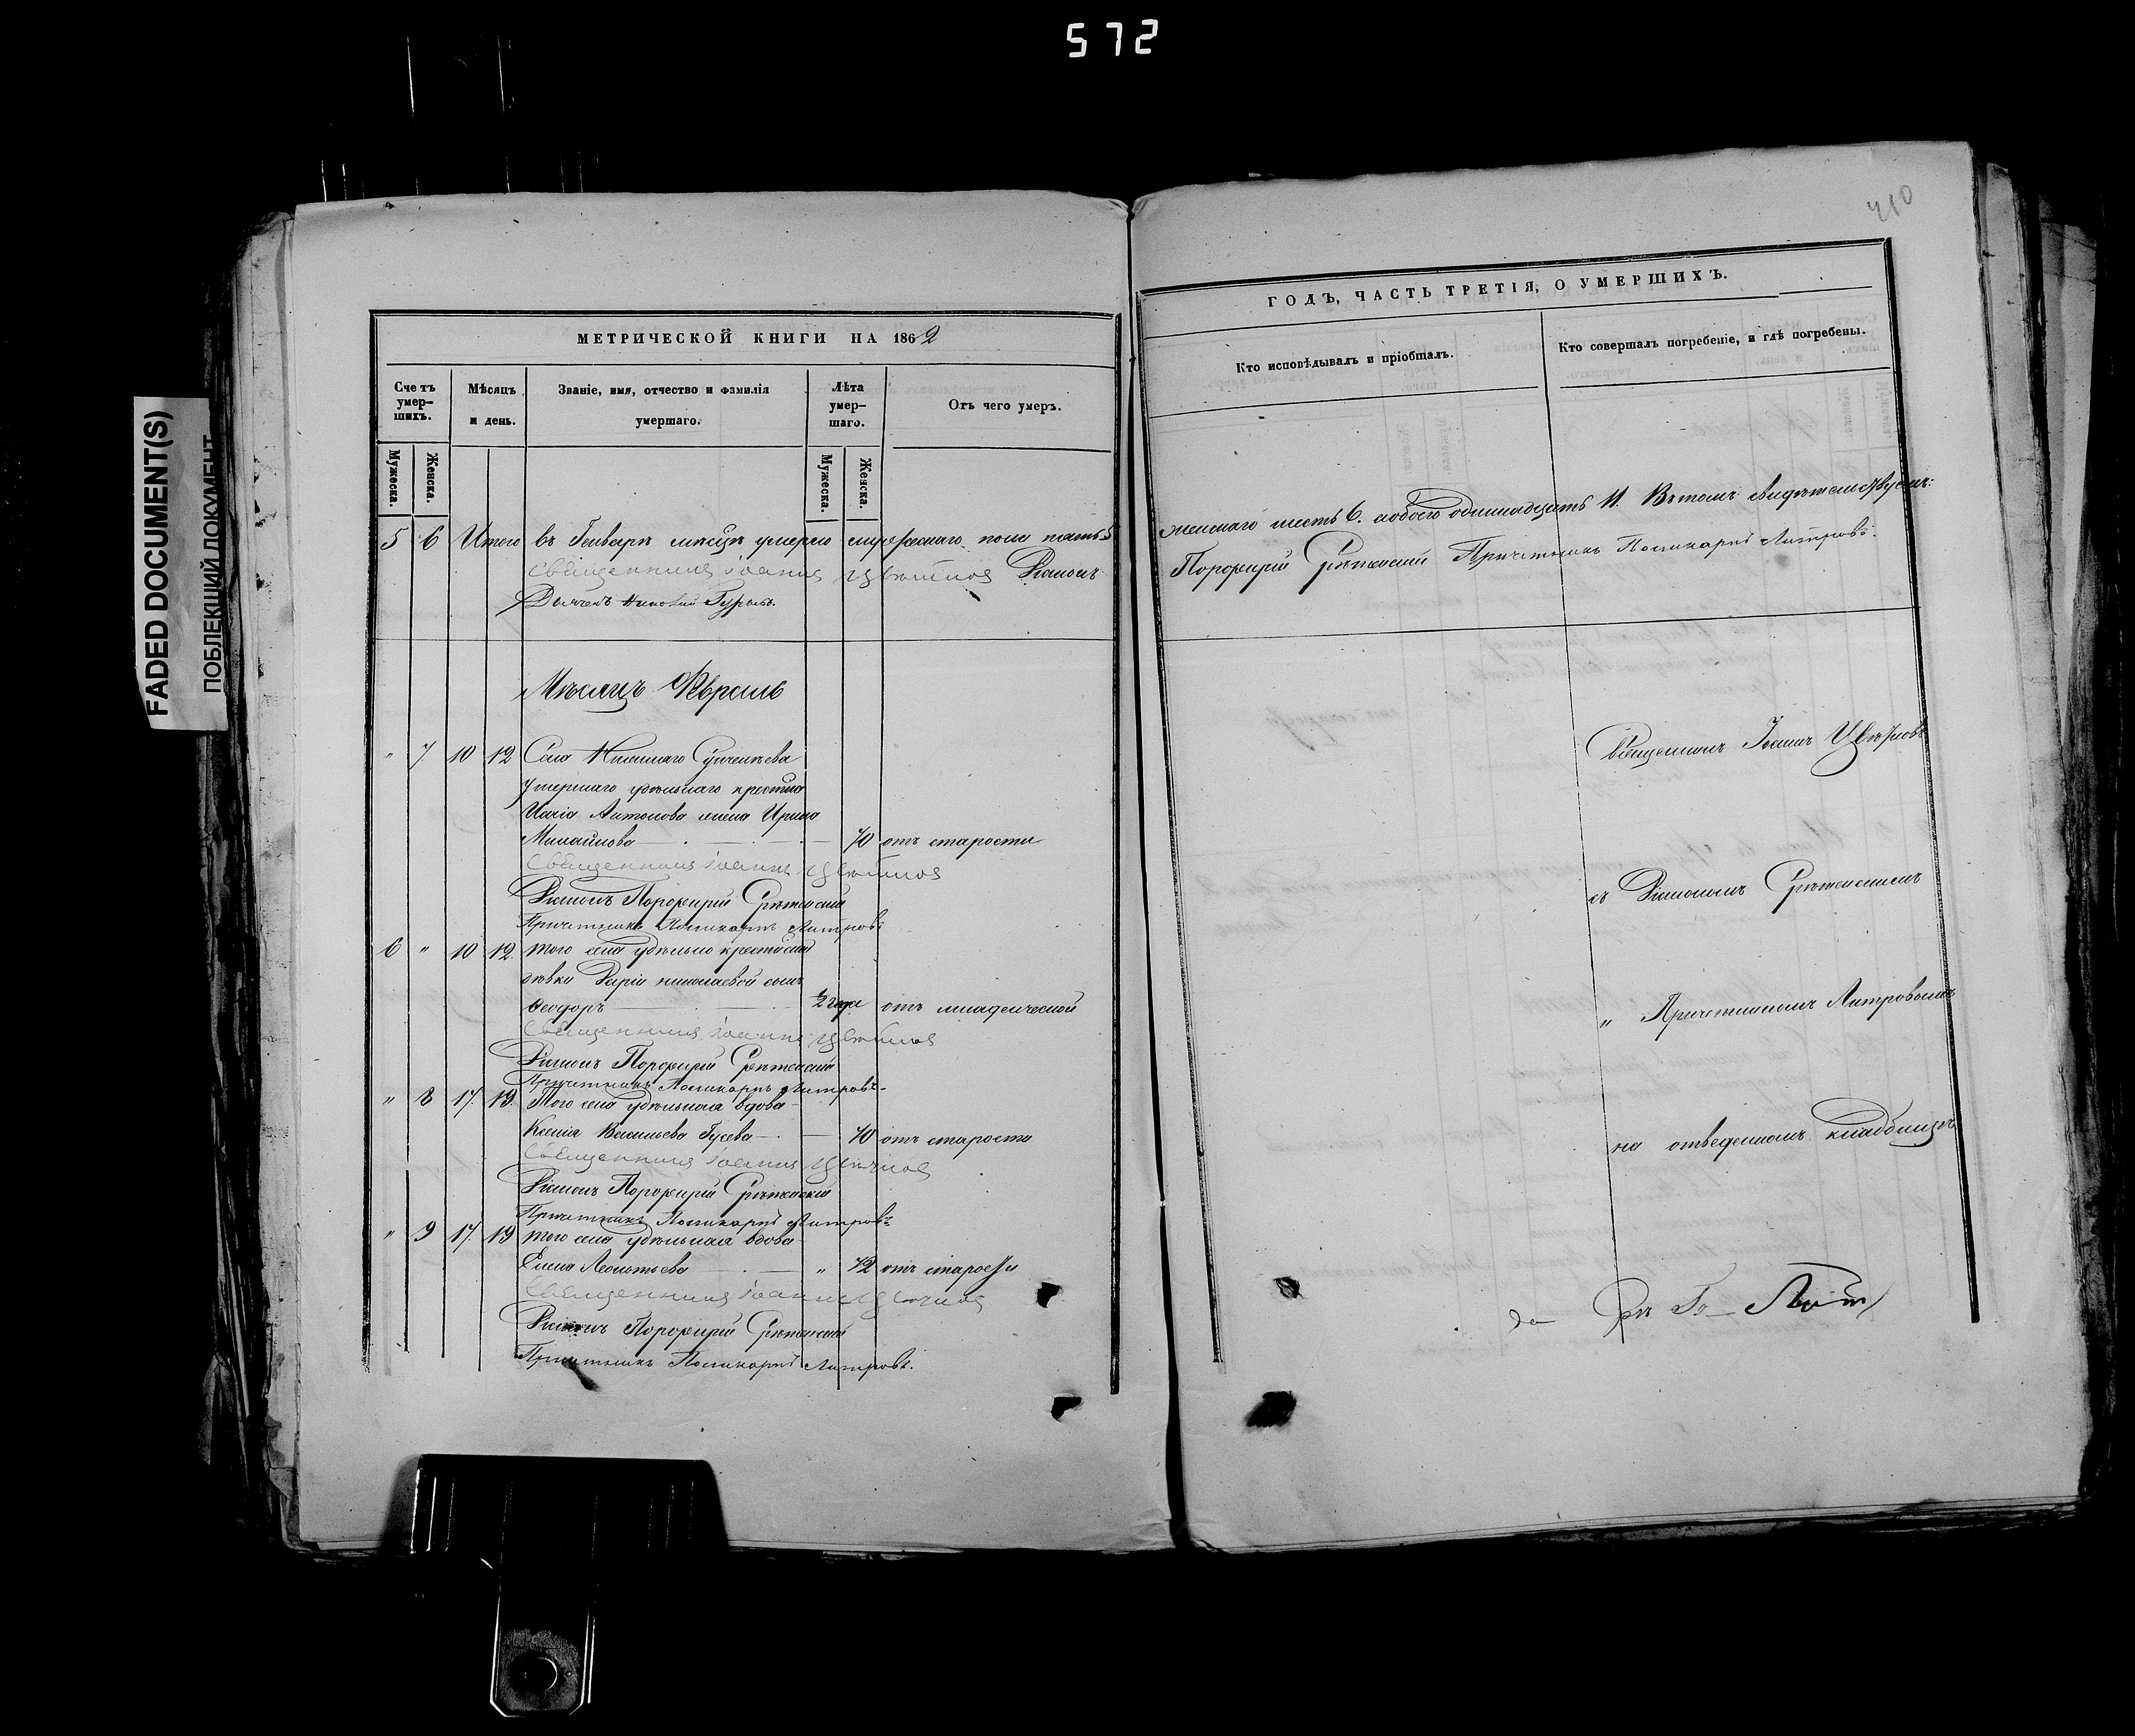 572
FADED DOCUMENT(S)
ПОБЛЕКШИЙ ДОКУМЕНТ
410
МЕТРИЧЕСКОЙ КНИГИ НА 1862
Счетъ умер-
шихъ.
Мѣсяцъ
и день.
Званіе, имя, отчество и фамилія
умершаго.
Лѣта
умер-
шаго.
Отъ чего умеръ.
Мужеска.
Женска.
Мужеска.
Женска.
5 6 Итого въ Генварѣ мѣсяцѣ умерло мужескаго пола пять 5
Священникъ Іоаннъ Цвѣтков Діаконъ
Дьячекъ
Мѣсяцъ Февраль
" 7 10 12 Села
Умершаго удѣльнаго крестьян
Антонова жена Ирина
Михайлова 70 отъ старости
Священникъ Іоаннъ Цвѣтков
Діаконъ Порфирій Срѣтенскій
Причетникъ Поликарпъ Литровъ
6 " 10 12 того села удѣльно крестьян
дѣвки Дарьи николаевой сынъ
Феодоръ 1/2 года отъ младенческой
Священникъ Іоаннъ Цвѣтков
Діаконъ Порфирій Срѣтенскій
Причетникъ Поликарпъ Литровъ
" 8 17. 19. Того села удѣльная вдова
Ксенія Васильева Гусева 70 отъ старости
Священникъ Іоаннъ Цвѣтков
Діаконъ Порфирій Срѣтенскій
Причетникъ Поликарпъ Литровъ
" 9 17. 19 того села удѣльная вдова
Елена Леонтьева " 72 отъ старости
Священникъ Іоаннъ Цвѣтков
Діаконъ Порфирій Срѣтенскій
Причетникъ Поликарпъ Литровъ.
ГОДЪ, ЧАСТЬ ТРЕТІЯ, О УМЕРШИХЪ.
Кто исповѣдывалъ и пріобщалъ.
Кто совершалъ погребеніе, и гдѣ погребены.
женскаго шесть 6. обоего одиннадцать 11. Въ томъ свидѣтельствуемъ:
Порфирій Срѣтенскій Причетникъ Поликарпъ Литровъ.
Священникъ Іоаннъ Цвѣтковъ
съ Діакономъ Срѣтенскимъ
" Причетникомъ Литровымъ
на отведенномъ кладбищѣ